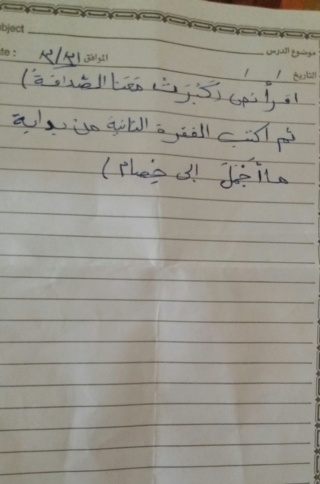 Subject
موضوع الدرس
Date : الموافق ٣/٣١
التاريخ / /
اقرأ نص (كَبُرَتْ مَعَنا الصَّداقَةُ)
ثم أكتب الفقرة الثانية من بداية
ما أَجْمَلَ إلى خِصام)